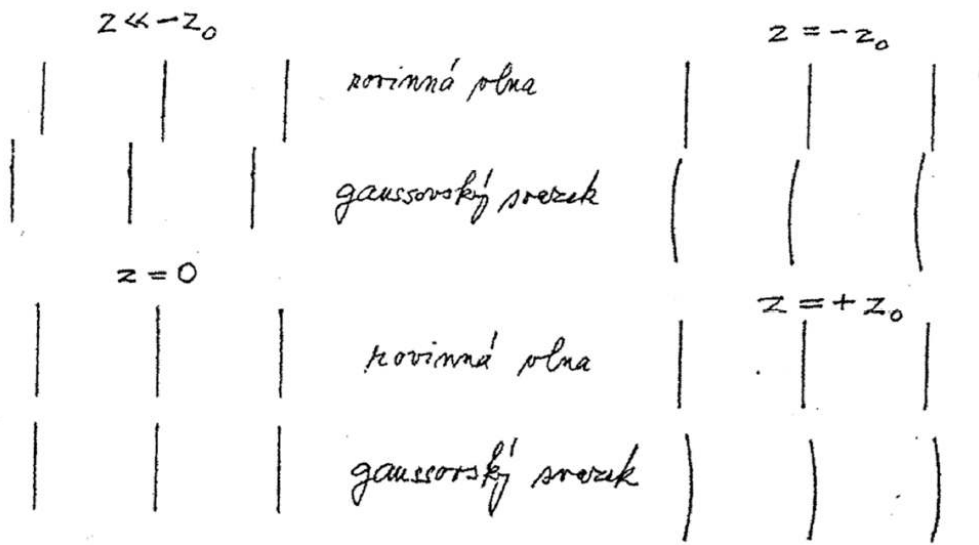 z ≪ -z₀
z = -z₀
rovinná vlna
gaussovský svazek
z = 0
z = +z₀
rovinná vlna
gaussovský svazek